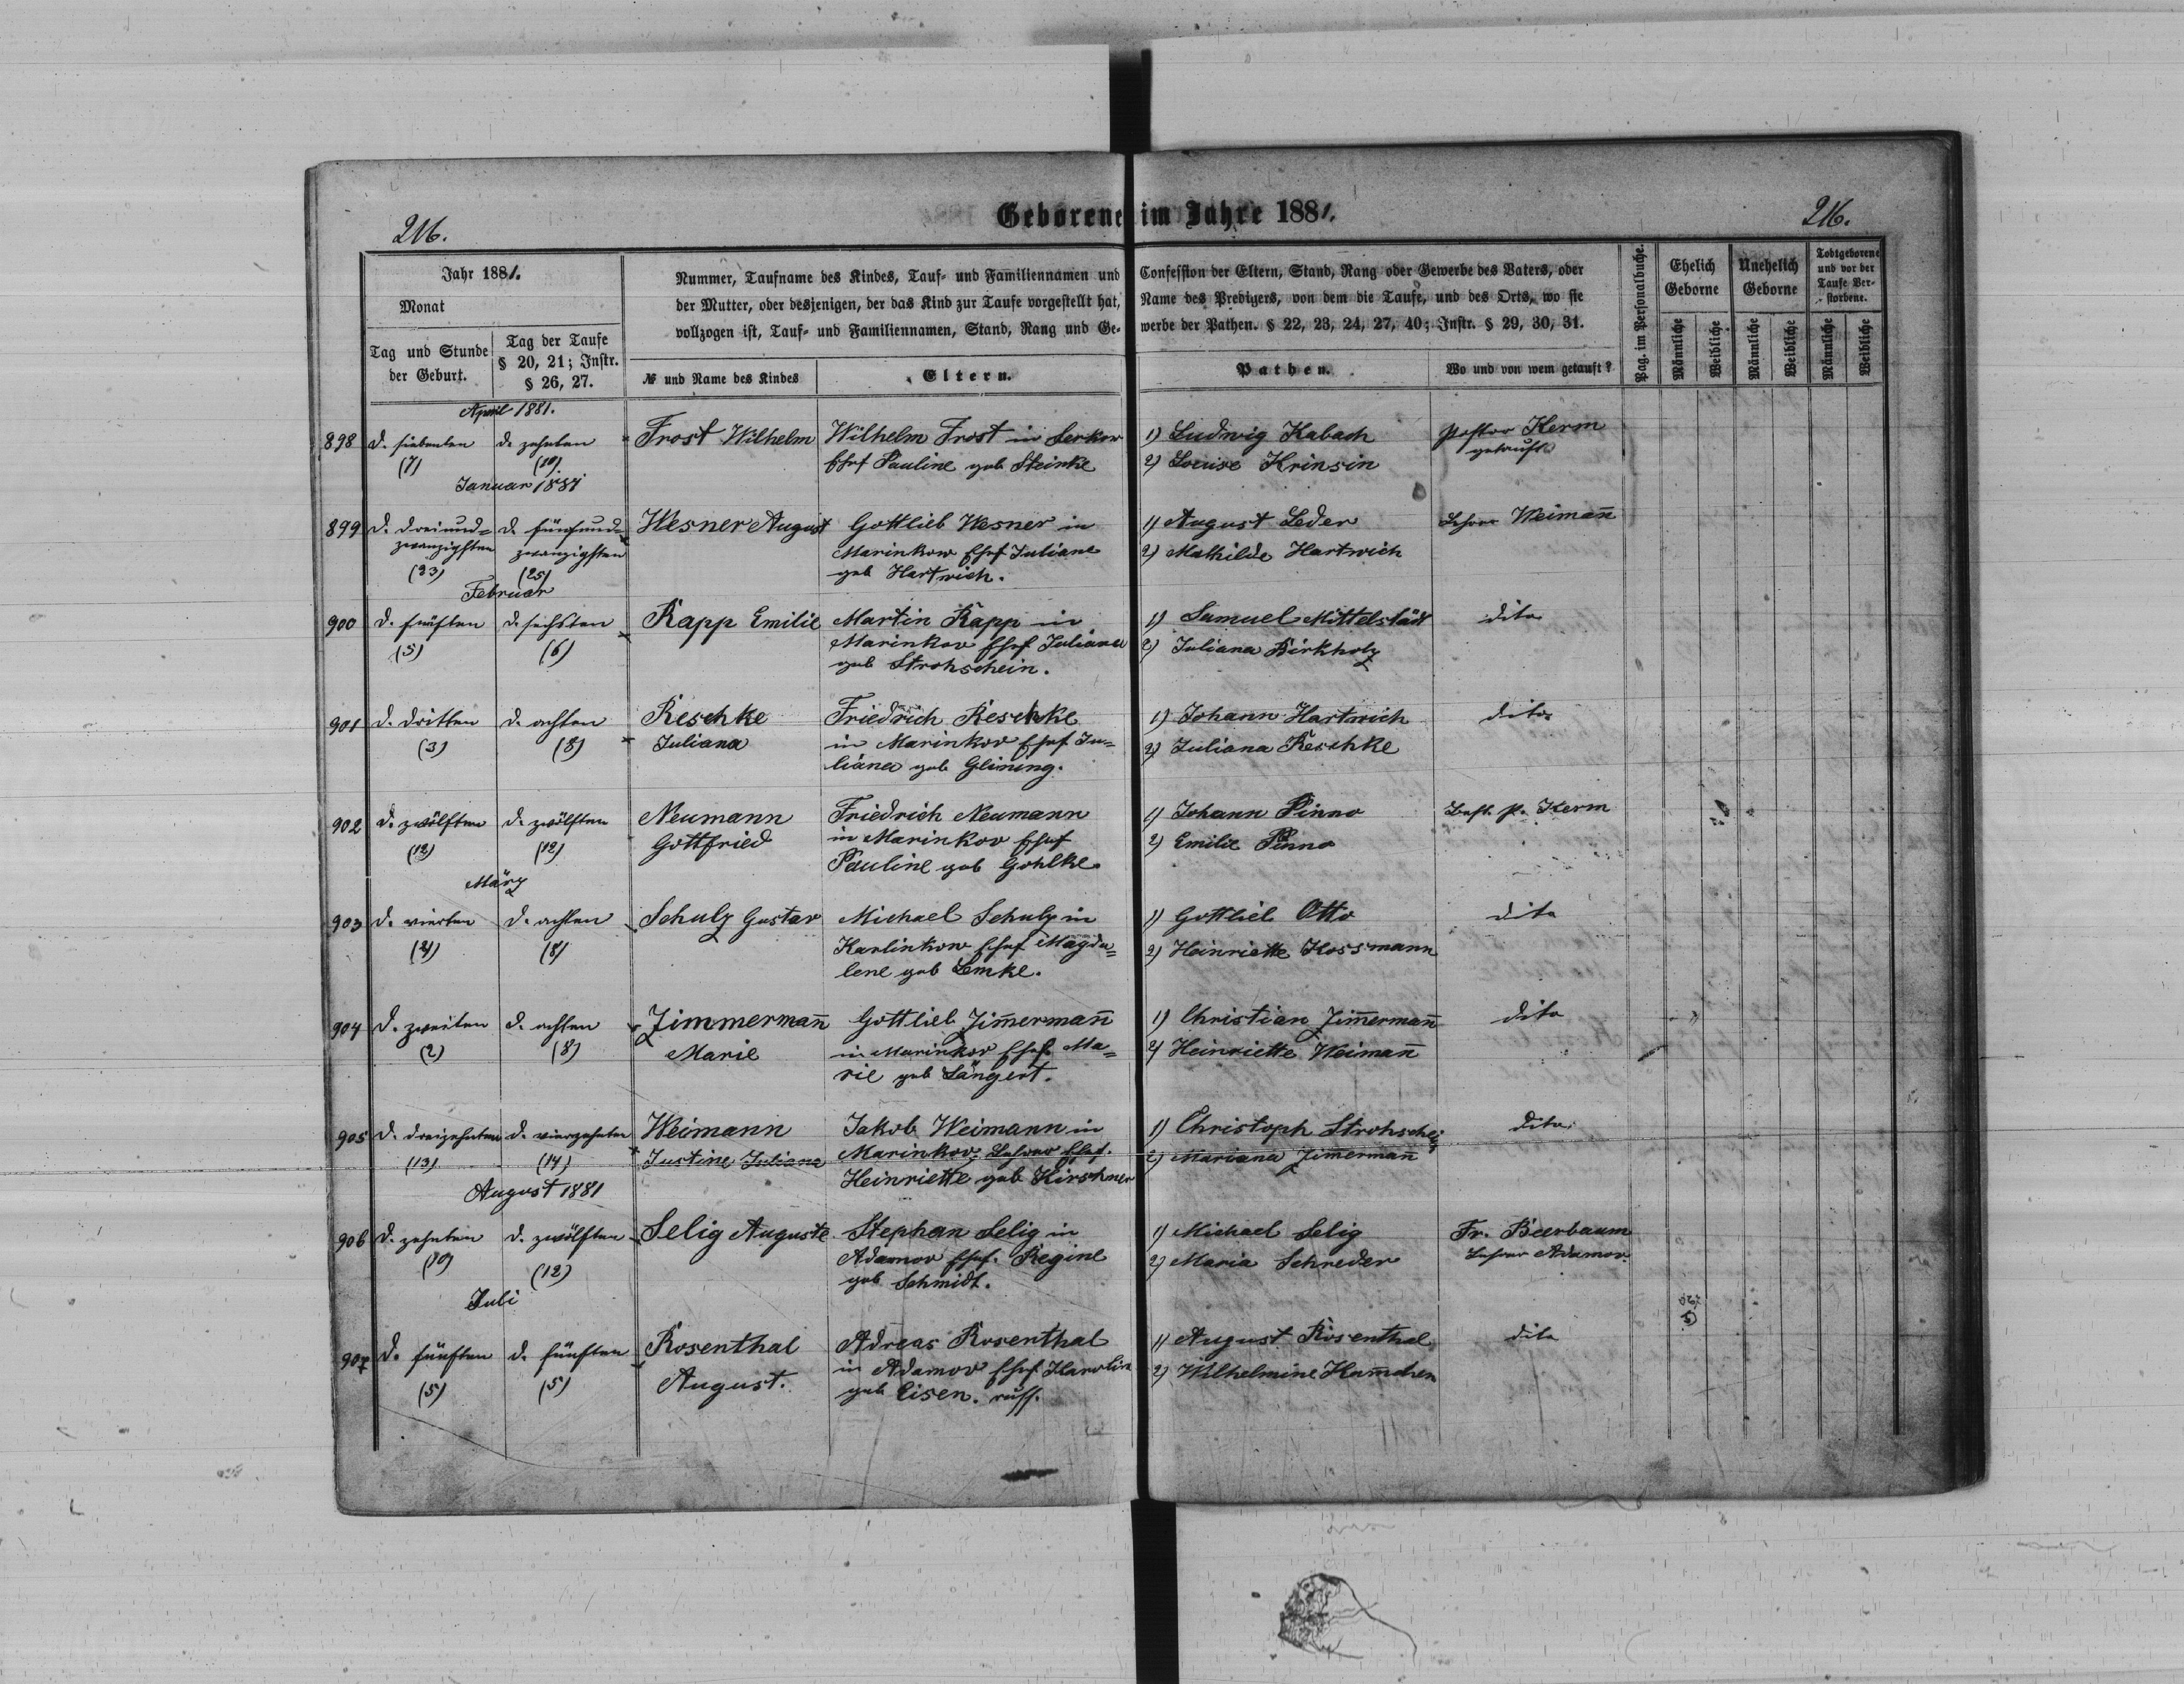 216.
Geborene im Jahre 1881.
216.
Jahr 1881.
Monat
Tag und Stunde der Geburt.
Tag der Taufe § 20, 21; Instr. § 26, 27.
Nummer, Taufname des Kindes, Tauf- und Familiennamen und Confession der Eltern, Stand, Rang oder Gewerbe des Vaters, oder
der Mutter, oder desjenigen, der das Kind zur Taufe vorgestellt hat, Name des Predigers, von dem die Taufe, und des Orts, wo sie
vollzogen ist, Tauf- und Familiennamen, Stand, Rang und Gewerbe der Pathen. § 22, 23, 24, 27, 40; Instr. § 29, 30, 31.
№ und Name des Kindes
Eltern.
Pathen.
Wo und von wem getauft?
Pag. im Personalbuche.
Ehelich Geborne
Unehelich Geborne
Todtgeborene und vor der Taufe Verstorbene.
Männliche
Weibliche
Männliche
Weibliche
Männliche
Weibliche
April 1881.
898 d. siebenten (7)
d. zehnten (10)
Frost Wilhelm
Wilhelm Frost in Serkow
Ehef Pauline geb Steinke
1) Ludwig Kabach
2) Louise Krinsin
Pastor Kerm
getauft
Januar 1881
899 d. dreiund=
zwanzigsten
(23)
d. fünfund=
zwanzigsten
(25)
Wesner August
Gottlieb Wesner in
Marinkow Ehef Juliane
geb Hartwich.
1) August Leder
2) Mathilde Hartwich
Lehrer Weimañ
Februar
900 d. fünften
(5)
d. sechsten
(6)
Rapp Emilie
Martin Rapp in
Marinkov Ehef Juliana
geb Strohschein.
1) Samuel Mittelstädt
2) Juliana Birkholz
dito
901 d. dritten
(3)
d. achten
(8)
Reschke
Juliana
Friedrich Reschke
in Marinkov Ehef Ju=
liana geb Glining.
1) Johann Hartwich
2) Juliana Reschke
dito
902 d. zwölften
(12)
d. zwölften
(12)
Neumann
Gottfried
Friedrich Neumann
in Marinkov Ehef
Pauline geb Gohlke
1) Johann Pinno
2) Emilie Pinno
Best. P. Kerm
März
903 d. vierten
(4)
d. achten
(8)
Schulz Gustav
Michael Schulz in
Karlinkow Ehef Magda=
lene geb Lemke.
1) Gottlieb Otto
2) Heinriette Kossmann
dito
904 d. zweiten
(2)
d. achten
(8)
Zimmermañ
Marie
Gottlieb Zim̄ermañ
in Marinkov Ehef. Ma=
rie geb Längert.
1) Christian Zim̄ermañ
2) Heinriette Weimañ
dito
905 d. dreizehnten
(13)
d. vierzehnten
(14)
Weimann
Justine Juliana
Jakob Weimann in
Marinkov Lehrer Ehef.
Heinriette geb Kirschner
1) Christoph Strohschein
2) Mariana Zim̄ermañ
dito
August 1881
906 d. zehnten
(10)
d. zwölften
(12)
Selig Auguste
Stephan Selig in
Adamov Ehef. Regine
geb Schmidt.
1) Michael Selig
2) Maria Schreder
Fr. Beerbaum
Lehrer Adamov.
Juli
907 d. fünften
(5)
d. fünften
(5)
Rosenthal
August.
Adreas Rosenthal
in Adamov Ehef Karolin
geb Eisen. russ.
1) August Rosenthal
2) Wilhelmine Ham̄chen
dito